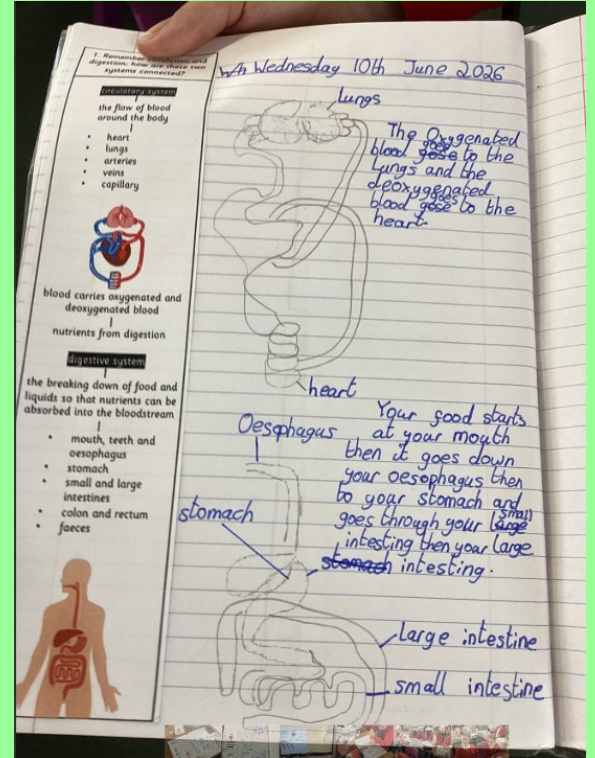 1. Remember circulation and
digestion, how are these two
systems connected?
circulatory system
the flow of blood
around the body
heart
lungs
arteries
veins
capillary
blood carries oxygenated and
deoxygenated blood
nutrients from digestion
digestive system
the breaking down of food and
liquids so that nutrients can be
absorbed into the bloodstream
mouth, teeth and
oesophagus
stomach
small and large
intestines
colon and rectum
faeces
Wednesday 10th June 2026
lungs
The Oxygenated
blood goes to the
lungs and the
deoxygenated
blood goes to the
heart.
heart
Your food starts
at your mouth
then it goes down
your oesophagus then
to your stomach and
goes through your small
intesting then your large
intesting.
Oesophagus
stomach
large intestine
small intestine